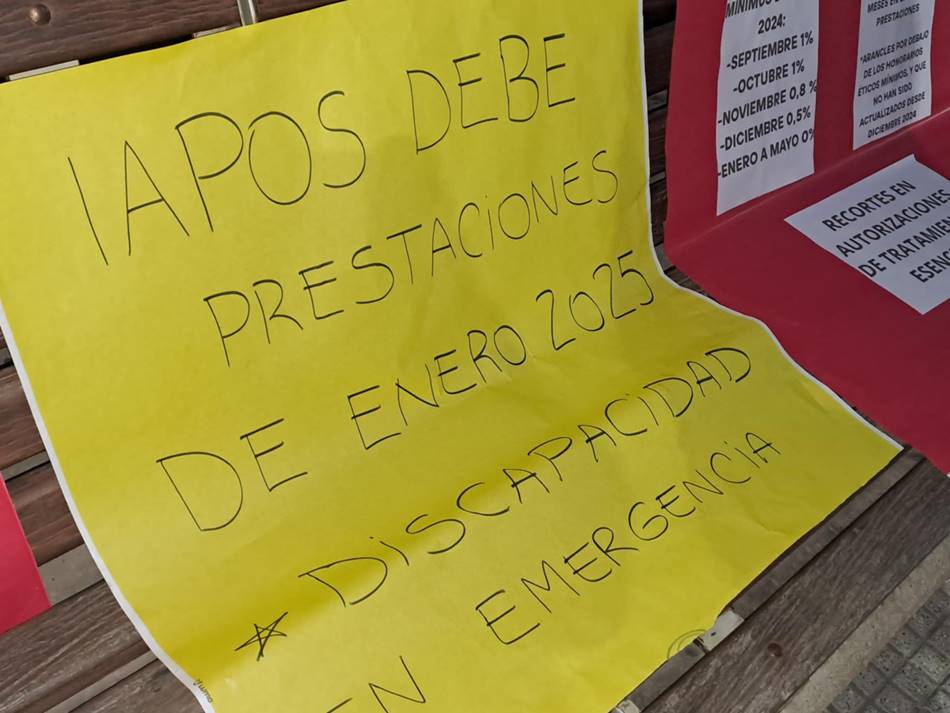 IAPOS DEBE
PRESTACIONES
DE ENERO 2025
DISCAPACIDAD
EN EMERGENCIA
MÍNIMOS
2024:
-SEPTIEMBRE 1%
-OCTUBRE 1%
-NOVIEMBRE 0,8 %
-DICIEMBRE 0,5%
-ENERO A MAYO 0%
MESES EN
PRESTACIONES
*ARANCLES POR DEBAJO
DE LOS HONORARIOS
ÉTICOS MÍNIMOS, Y QUE
NO HAN SIDO
ACTUALIZADOS DESDE
DICIEMBRE 2024
RECORTES EN
AUTORIZACIONES
DE